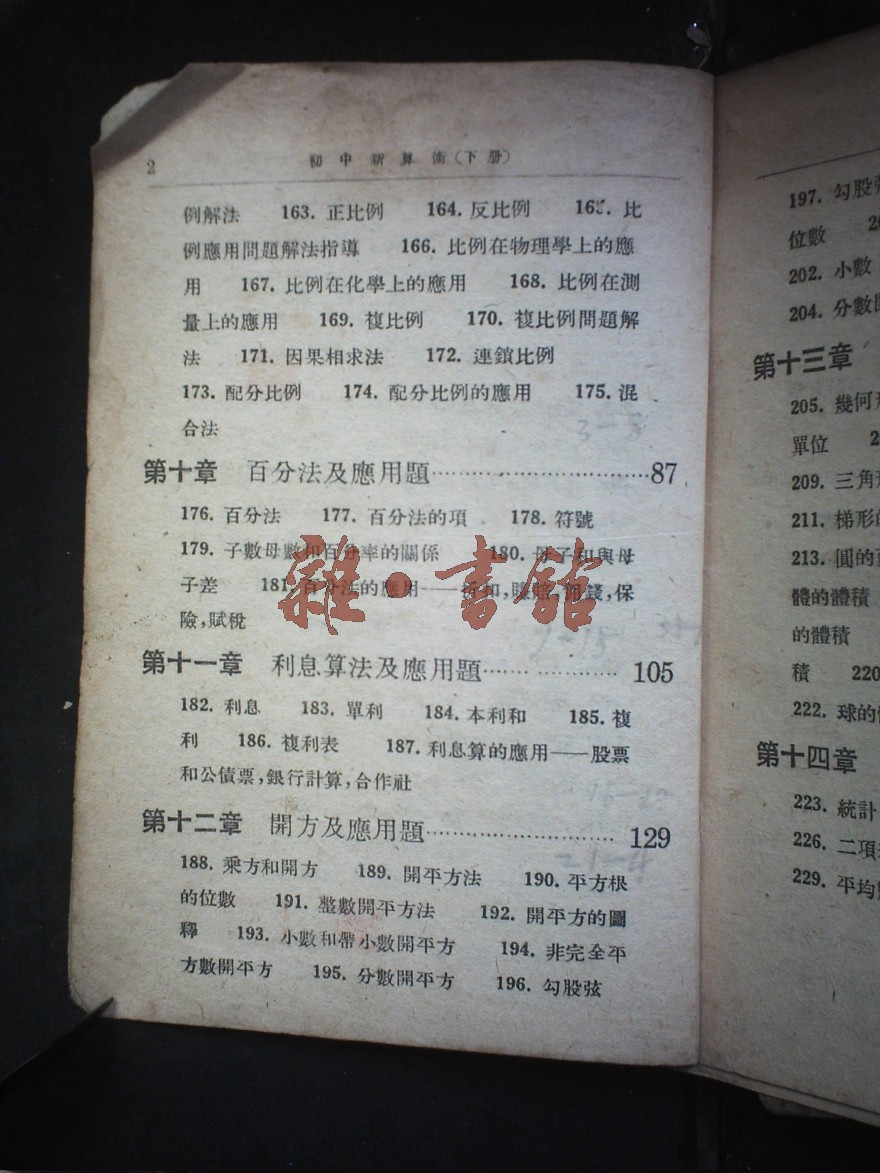 2
初中新算術(下册)
例解法 163. 正比例 164. 反比例 165. 比
例應用問題解法指導 166. 比例在物理學上的應
用 167. 比例在化學上的應用 168. 比例在測
量上的應用 169. 複比例 170. 複比例問題解
法 171. 因果相求法 172. 連鎖比例
173. 配分比例 174. 配分比例的應用 175. 混
合法
第十章 百分法及應用題……………………87
176. 百分法 177. 百分法的項 178. 符號
179. 子數母數和百分率的關係 180. 母子和與母
子差 181. 百分法的應用——折扣,賺賠,佣錢,保
險,賦稅
第十一章 利息算法及應用題…… ………… 105
182. 利息 183. 單利 184. 本利和 185. 複
利 186. 複利表 187. 利息算的應用——股票
和公債票,銀行計算,合作社
第十二章 開方及應用題………………… 129
188. 乘方和開方 189. 開平方法 190. 平方根
的位數 191. 整數開平方法 192. 開平方的圖
釋 193. 小數和帶小數開平方 194. 非完全平
方數開平方 195. 分數開平方 196. 勾股弦
雜·書館
3-8
7-15
15-20
21-4
197. 勾股
位數
202. 小數
204. 分數
第十三章
205. 幾何
單位
209. 三角
211. 梯形的
213. 圓的
體的體積
的體積
積 220
222. 球的
第十四章
223. 統計
226. 二項
229. 平均